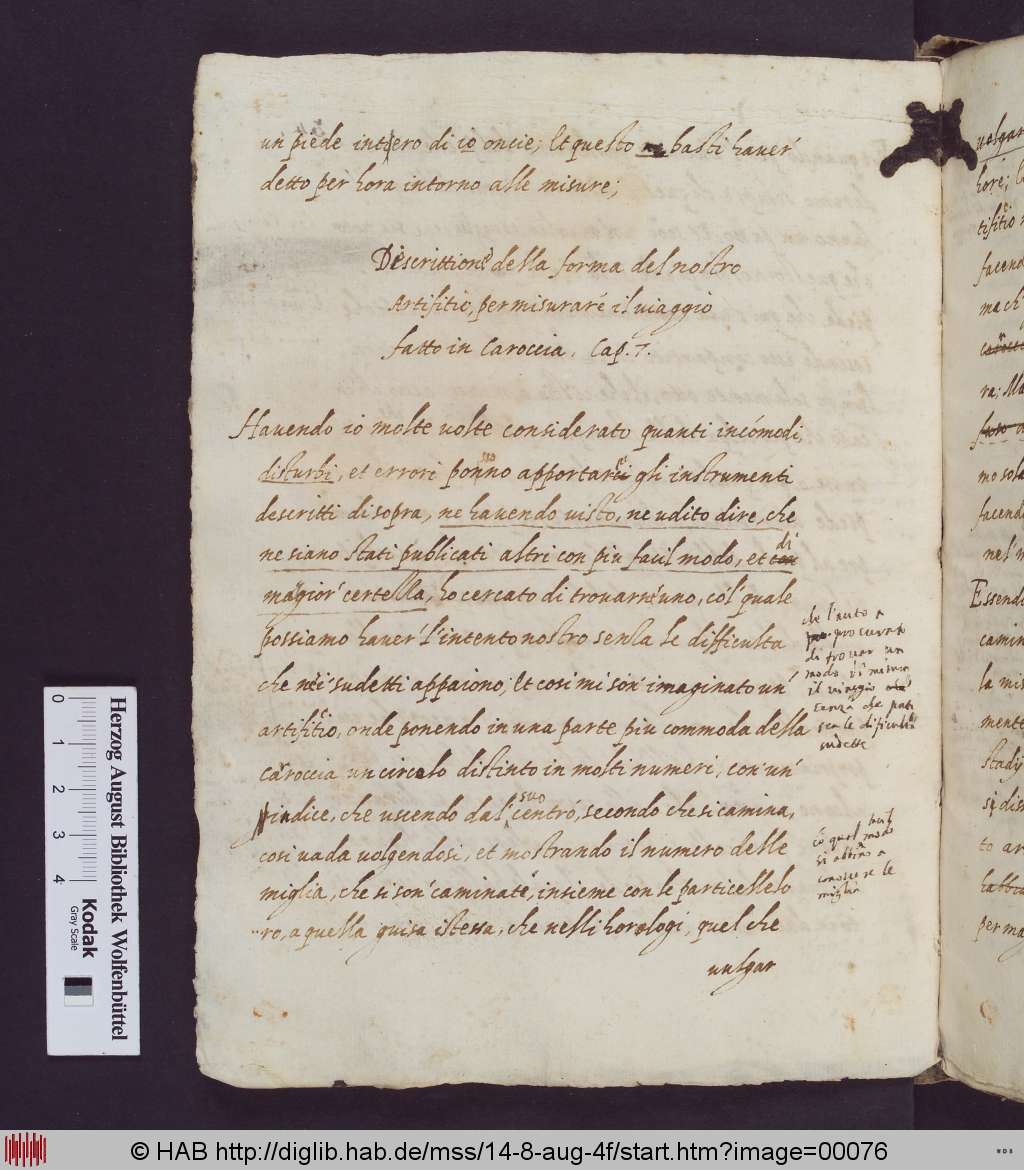 un piede intiero di io oncie; Et questo basti haver'
detto per hora intorno alle misure;
Descrittione della forma del nostro
Artifitio, per misurare il viaggio
fatto in Caroccia. Cap. 7.
Havendo io molte volte considerato quanti incómodi,
disturbi, et errori ponno apportar gli instrumenti
descritti di sopra, ne havendo visto, ne udito dire, che
ne siano stati publicati altri con piu facil modo, et di
magior' certezza, ho cercato di trovarne uno, có'l quale
possiamo haver' l'intento nostro senza le difficulta
che nei sudetti appaiono; Et cosi mi son' imaginato un'
artifitio, onde ponendo in una parte piu commoda della
caroccia un circolo distinto in molti numeri, con' un'
indice, che uscendo dal suo centró, secondo che si camina,
cosi vada volgendosi, et mostrando il numero delle
miglia, che si son' caminate, insieme con le particelle lo
ro, a quella guisa istessa, che nelli horologi, quel che
vulgar
di trovar un
modo di misurar
il viaggio
senza che pati
sca le dificultà
sudette
có qual facil modo
si abbino a
conoscere le
miglia
volgar
hore;
tifitio
facend
mach
ra; Ma
mo sola
facendo
nel m
Essendo
camin
la mis
mente
Stadij
si dis
to ar
per ma
0 1 2 3 4
Herzog August Bibliothek Wolfenbüttel
Kodak
Gray Scale
© HAB http://diglib.hab.de/mss/14-8-aug-4f/start.htm?image=00076